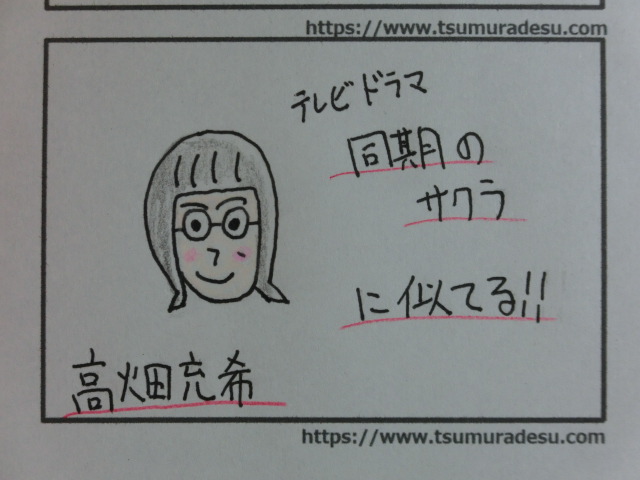 https://www.tsumuradesu.com
テレビドラマ
同期の
サクラ
に似てる!!
高畑充希
https://www.tsumuradesu.com